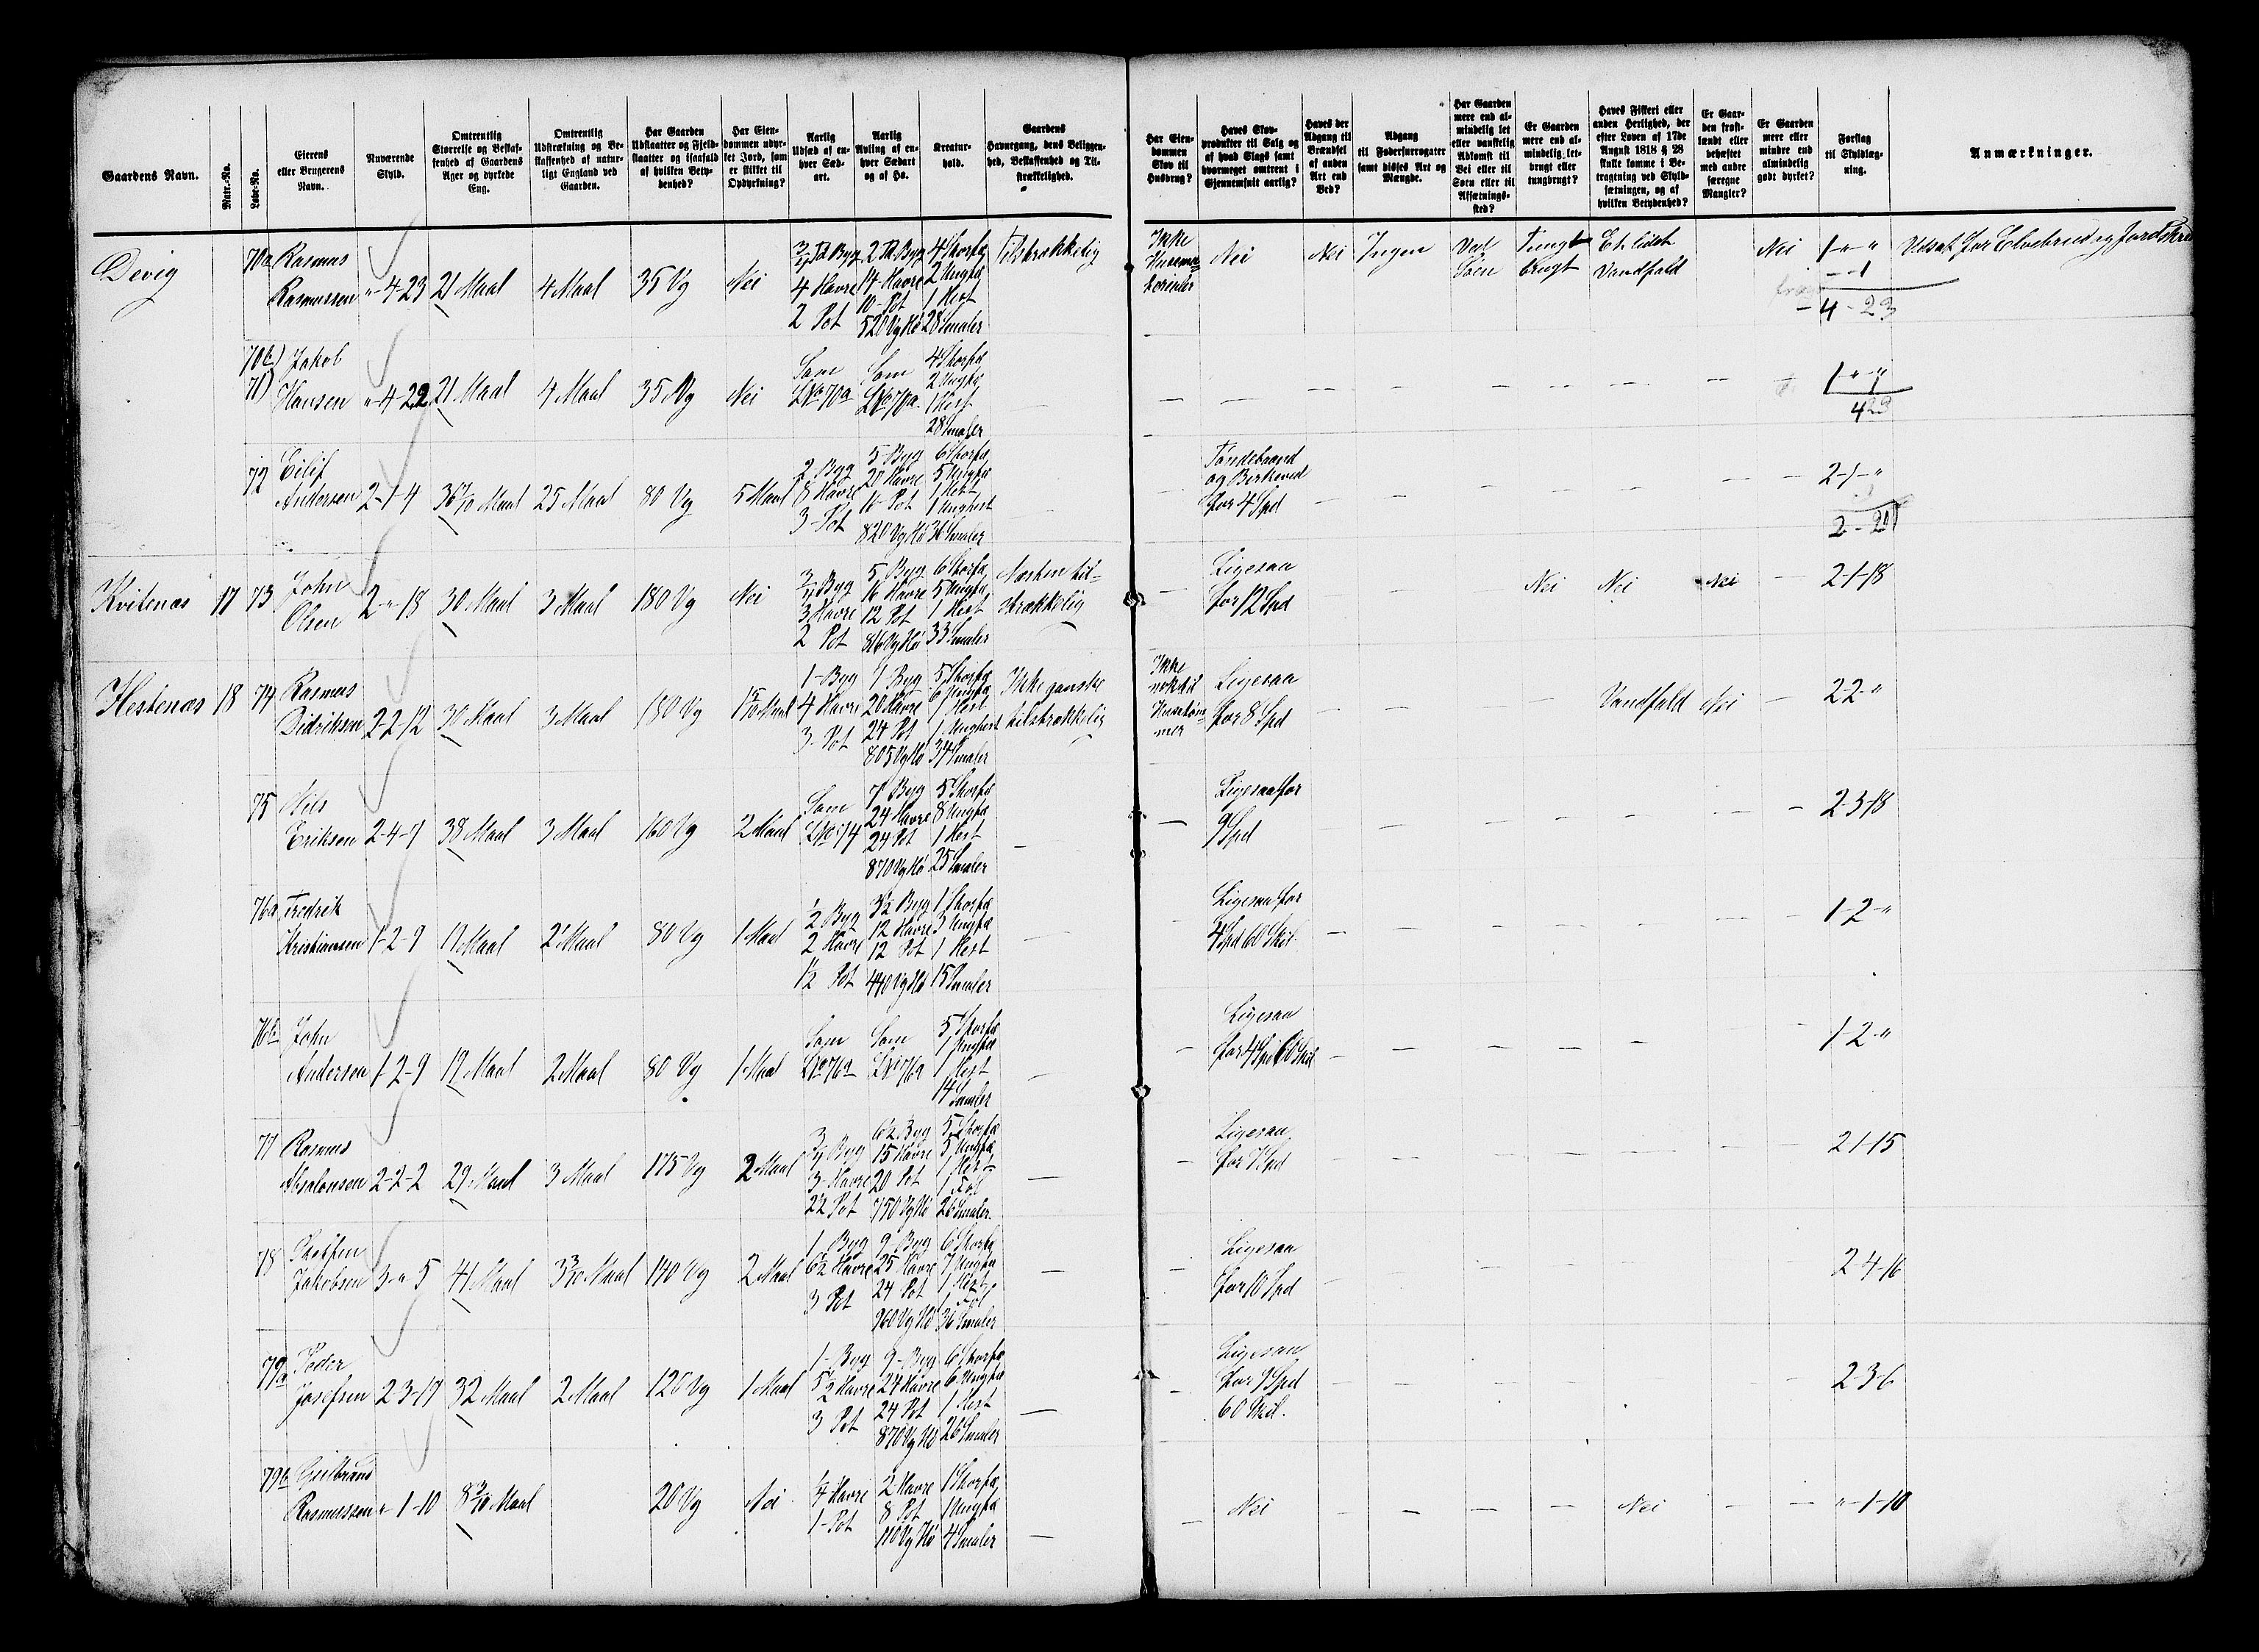 Gaardens Navn.
Matr.-No.
Løbe-No.
Eierens eller Brugerens Navn.
Nuværende Skyld.
Omtrentlig Størrelse og Beskaffenhed af Gaardens Ager og dyrkede Eng.
Omtrentlig Udstrækning og Beskaffenhed af naturligt England ved Gaarden.
Har Gaarden Udslaatter og Fjeldslaatter og isaafald af hvilken Betydenhed?
Har Eiendommen udyrket Jord, som er skikket til Opdyrkning?
Aarlig Udsæd af enhver Sædart.
Aarlig Avling af enhver Sædart og af Hø.
Kreaturhold.
Gaardens Havnegang, dens Beliggenhed, Beskaffenhed og Tilstrækkelighed.
Har Eiendommen Skov til Husbrug?
Haves Skovprodukter til Salg og af hvad Slags samt hvormeget omtrent i Gjennemsnit aarlig?
Haves der Adgang til Brændsel af anden Art end Ved?
Adgang til Fodersurrogater samt disses Art og Mængde.
Har Gaarden mere end almindelig let eller vanskelig Adkomst til Vei eller til Søen eller til Afsætningssted?
Er Gaarden mere end almindelig letbrugt eller tungbrugt?
Haves Fiskeri eller anden Herlighed, der efter Loven af 17de August 1818 § 28 skulle komme i Betragtning ved Skyldsætningen, og af hvilken Betydenhed?
Er Gaarden frostlændt eller behæftet med andre færegne Mangler?
Er Gaarden mere eller mindre end almindelig godt dyrket?
Forslag til Skyldlægning.
Anmærkninger.
Devig 70a Rasmus Rasmussen "-4-23 21 Maal 4 Maal 35 Vg Nei
3/4 Td Byg 4 Havre 2 Pot
2 Td. Byg 14 Havre 10 Pot 520 Vg Hø
4 Storfæ 2 Ungfæ 1 Hest 28 Smaler
Tilstrækkelig
Ikke
Nei Nei Ingen Ved Søen Tungt brugt Et lidet Vandfald Nei 1-"-"
- 4 - 23
Udsat for Elvebrud og Jordskre
70b) 71) Jakob Hansen "-4-22 21 Maal 4 Maal 35 Vg Nei
Som LNo 70a
Som LNo 70a.
4 Storfæ 2 Ungfæ 1 Hest 28 Smaler
— — — — — — — — — 1-"-"
4 23
72 Eilif Andersen 2-1-4 36 Maal 25 Maal 80 Vg 5 Maal
2 Byg 8 Havre 3 Pot
5 Byg 20 Havre 16 Pot 820 Vg Hø
6 Storfæ 5 Ungfæ 1 Hest 1 Unghest 36 Smaler
— — Tøndebaand og Birkeved for 4 Spd — — — — — — — 2-1-"
Kvitenæs 17 73 John Olsen 2-"-18 30 Maal 3 Maal 180 Vg Nei
3/4 Byg 3 Havre 2 Pot
5 Byg 16 Havre 12 Pot 816 Vg Hø
6 Storfæ 5 Ungfæ 1 Hest 33 Smaler
Næsten tilstrækkelig
— Ligesaa for 12 Spd — — — Nei Nei Nei — 2-1-18
Hestenæs 18 74 Rasmus Didriksen 2-2-12 30 Maal 3 Maal 180 Vg Maal
1 Byg 4 Havre 3 Pot
7 Byg 20 Havre 24 Pot 805 Vg Hø
5 Storfæ 6 Ungfæ 1 Hest 1 Unghest 34 Smaler
Ikke ganske tilstrækkelig
Ikke nok til Hustømmer
Ligesaa for 8 Spd — — — — Vandfald Nei — 2-2-"
75 Nils Eriksen 2-4-7 38 Maal 3 Maal 160 Vg 2 Maal
Som LNo 74
7 Byg 24 Havre 24 Pot 870 Vg Hø
5 Storfæ 8 Ungfæ 1 Hest 25 Smaler
— — Ligesaa for 9 Spd — — — — — — — 2-3-18
76a Fredrik Kristiansen 1-2-9 17 Maal 2 Maal 80 Vg 1 Maal
1/2 Byg 2 Havre 1 1/2 Pot
3 1/2 Byg 12 Havre 12 Pot 440 Vg Hø
1 Storfæ 3 Ungfæ 1 Hest 15 Smaler
— — Ligesaa for 4 Spd 60 Skil. — — — — — — — 1-2-"
76b John Andersen 1-2-9 17 Maal 2 Maal 80 Vg 1 Maal
Som LNo 76a
Som LNo 76a
5 Storfæ 1 Ungfæ 1 Hest 14 Smaler
— — Ligesaa for 4 Spd 60 Skil — — — — — — 1-2-"
77 Rasmus Absalonsen 2-2-2 29 Maal 3 Maal 175 Vg 2 Maal
3/4 Byg 3 Havre 2 1/2 Pot
6 1/2 Byg 15 Havre 20 Pot 750 Vg Hø
5 Storfæ 5 Ungfæ 1 Hest 1 Føl 26 Smaler.
— — Ligesaa for Spd — — — — — — — 2-1-15
78 Steffen Jakobsen 3-"-5 41 Maal 3 Maal 140 Vg 2 Maal
1 Byg 6 1/2 Havre 3 Pot
9 Byg 25 Havre 24 Pot 960 Vg Hø
6 Storfæ 7 Ungfæ 1 Hest 1 Føl 36 Smaler
— — Ligesaa for 10 Spd — — — — — — 2-4-16
79a Peder Josefsen 2-3-17 32 Maal 2 Maal 126 Vg 1 Maal
1 Byg 5 1/2 Havre 3 Pot
9 Byg 24 Havre 24 Pot 870 Vg Hø
6 Storfæ 6 Ungfæ 1 Hest 26 Smaler
— — Ligesaa for 9 Spd 60 Skil. — — — — — — 2-3-6
79b Rasmussen "-1-10 Maal 20 Vg Nei
1/4 Havre 1 Pot
2 Havre 8 Pot 110 Vg Hø
1 Storfæ 1 Ungfæ 4 Smaler
— — Nei — — — — Nei — — "-1-10